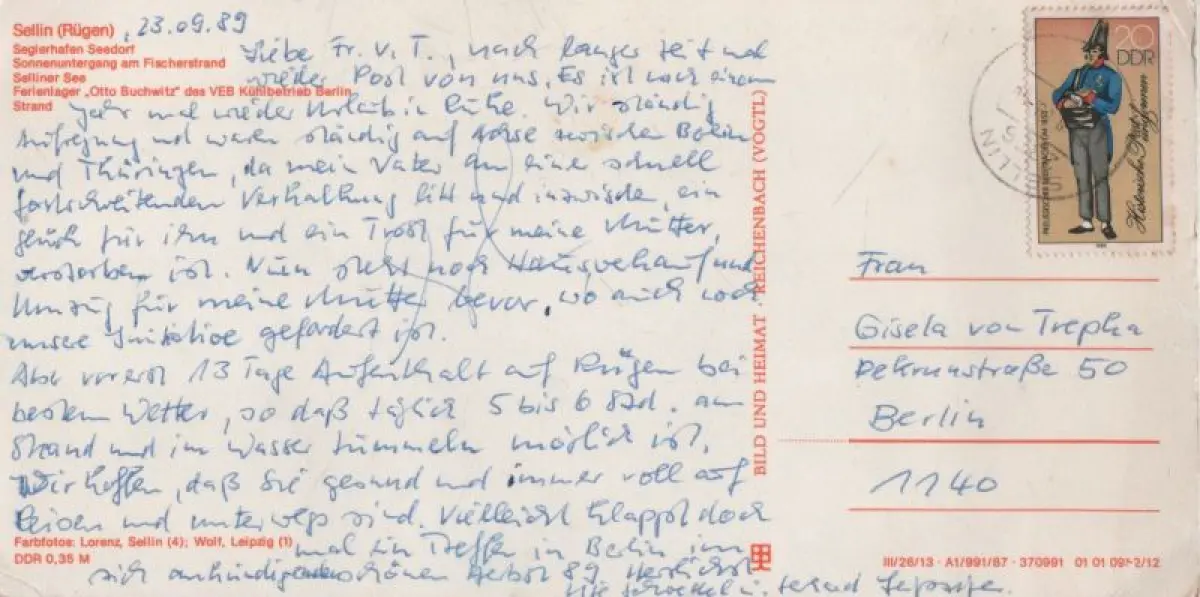 Sellin (Rügen), 23.09.89
Seglerhafen Seedorf
Sonnenuntergang am Fischerstrand
Selliner See
Ferienlager „Otto Buchwitz" des VEB Kühlbetrieb Berlin
Strand
Liebe Fr. v. T., nach langer Zeit mal
wieder Post von uns. Es ist nach einem
Jahr mal wieder Urlaub in
Aufregung und waren ständig auf Achse zwischen Berlin
und Thüringen, da mein Vater an einer schnell
fortschreitenden Verkalkung litt und inzwischen, ein
Glück für ihn und ein Trost für meine Mutter,
verstorben ist. Nun steht noch Hausverkauf und
Umzug für meine Mutter bevor, wo auch noch
unsere Initiative gefordert ist.
Aber vorerst 13 Tage Aufenthalt auf Rügen bei
bestem Wetter, so daß täglich 5 bis 6 Std. am
Strand und im Wasser tummeln möglich ist.
Wir hoffen, daß Sie gesund und immer voll auf
Reisen und unterwegs sind. Vielleicht klappt doch
mal ein Treffen in Berlin im
sich ankündigenden schönen Herbst 89. Herzlichst
Farbfotos: Lorenz, Sellin (4); Wolf, Leipzig (1)
DDR 0,35 M
BILD UND HEIMAT REICHENBACH (VOGTL)
20
DDR
Historische Postuniformen
SELLIN
Frau
Gisela von
50
Berlin
1140
III/26/13 · A1/991/87 · 370991 01 01 09